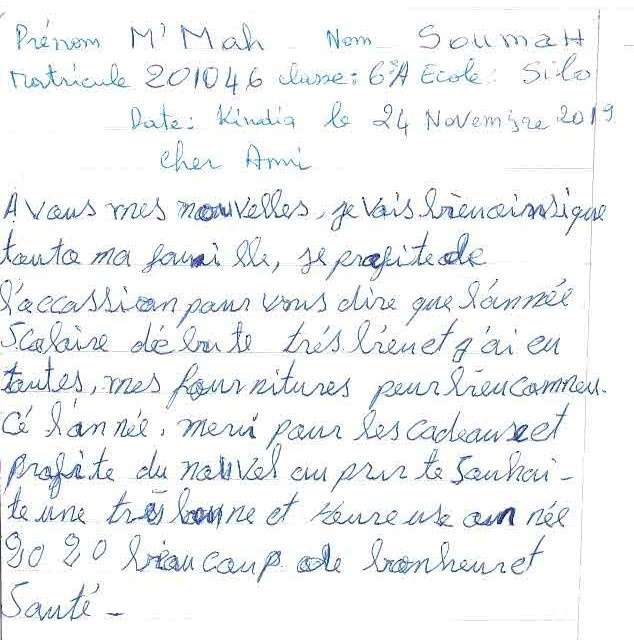 Prénom M'Mah Nom Soumah
Matricule 201046 classe: 6è A Ecole: Silo
Date: Kindia le 24 Novembre 2019
cher Ami
A vous mes nouvelles, je vais bien ainsi que
toute ma famille, je profite de
l'accassion pour vous dire que l'année
Scolaire débute trés bien et j'ai eu
toutes, mes fournitures pour bien commen-
cé l'année, merci pour les cadeaux et
profite du nouvel an pour te Souhai-
te une très bonne et Heureuse année
2020 beaucoup de bonheur et
Santé -